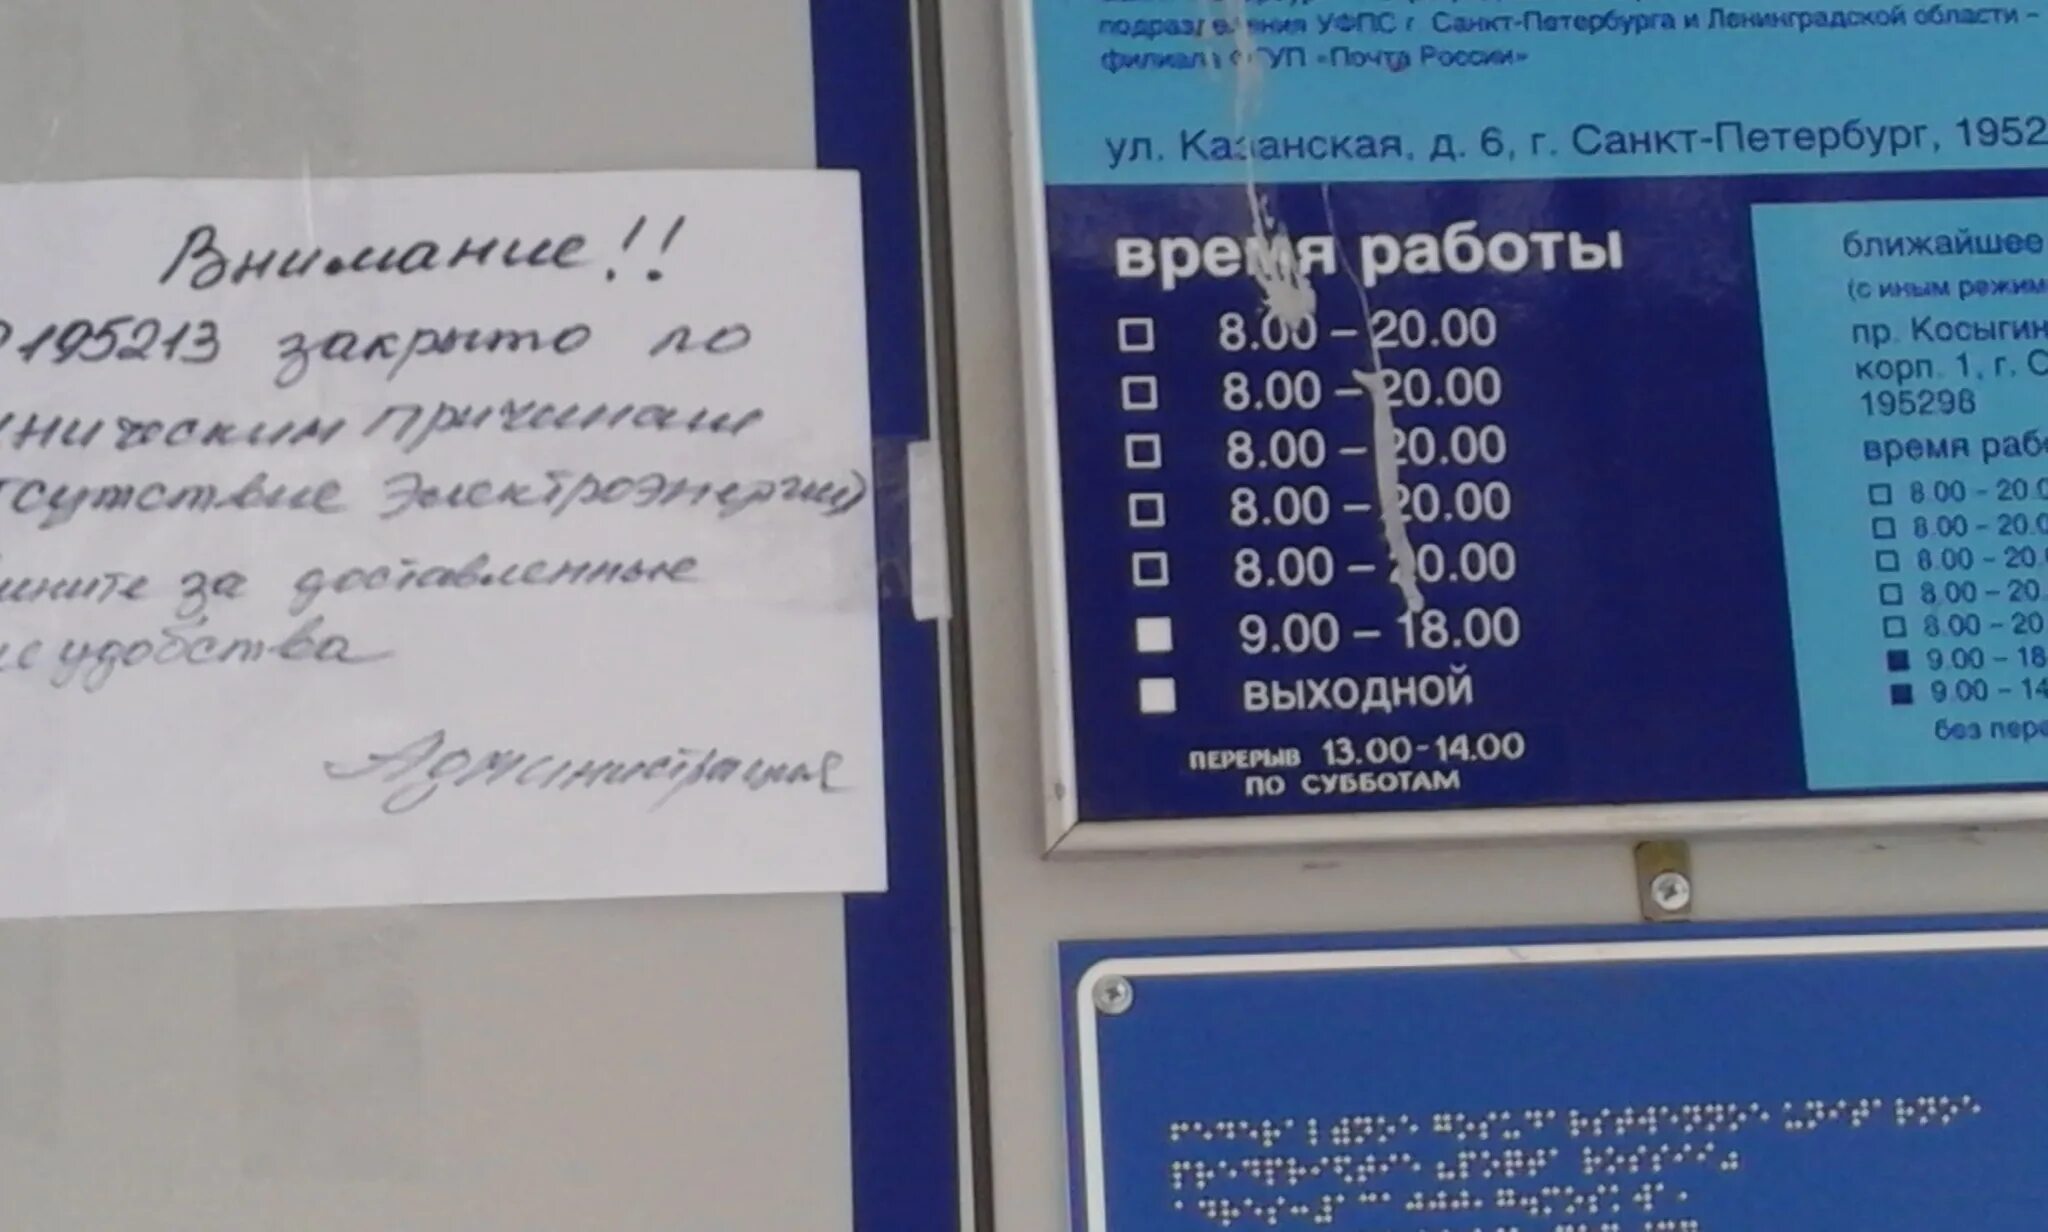 Внимание!!
195213 закрыто по
ническим причинам
сутствие электроэнергии)
ините за доставленные
неудобства
Администрация
подразделения УФПС г. Санкт-Петербурга и Ленинградской области -
филиал ФГУП «Почта России»
ул. Казанская, д. 6, г. Санкт-Петербург, 1952
время работы
8.00 – 20.00
8.00 – 20.00
8.00 – 20.00
8.00 – 20.00
8.00 – 20.00
9.00 – 18.00
ВЫХОДНОЙ
ПЕРЕРЫВ 13.00-14.00
ПО СУББОТАМ
ближайшее
(с иным режим
пр. Косыгин
корп. 1, г. С
195298
время раб
8.00 - 20.0
8.00 - 20.0
8.00 - 20.0
8.00 - 20.
8.00 - 20
9.00 - 18
9.00 - 14
без пере